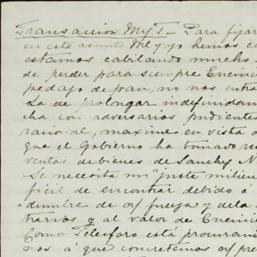 Transaccion M y T - Para fijar
en este asunto Ml y yo hemos
estamos cabilando mucho
de perder para siempre Encinii
pedazo de pan, no nos entra
sa de prolongar indefinidam
cha con adversarios pudientes
maxime en vista
que el Gobierno ha tomado re
ventas de bienes de Sanchez N
Se necesita un justo
ficil de encontrar debido á
dumbre de ntj fuerza y de la
trarios y al valor de Encini
Como Telesforo está procuran
nos á que concretemos ntj pre